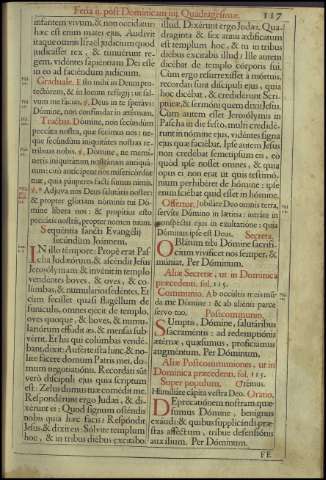 Feria ij. post Dominicam iiij. Quadragesimæ. 117
infantem vivum, & non occidatur:
hæc est enim mater ejus. Audivit
itaque omnis Israël judicium quod
judicasset rex, & timuerunt re-
gem, videntes sapientiam Dei esse
in eo ad faciendum judicium.
Graduale. Esto mihi in Deum pro-
tectórem, & in locum refúgij: ut sal-
vum me facias. ℣. Deus in te sperávi:
Dómine, non confúndar in ætérnum.
Tractus. Dómine, non secúndum
peccáta nostra, quæ fécimus nos: ne-
que secúndum iniquitátes nostras re-
tríbuas nobis. ℣. Dómine, ne memí-
neris iniquitátum nostrárum antiquá-
rum: cito antícipent nos misericórdiæ
tuæ, quia páuperes facti sumus nimis.
℣. Adjuva nos Deus salutáris noster:
& propter glóriam nóminis tui Dó-
mine líbera nos: & propítius esto
peccátis nostris, propter nomen tuum.
Sequentia sancti Evangelij
secúndum Joánnem.
IN illo témpore: Propè erat Pas-
cha Judæórum, & ascéndit Jesus
Jerosólymam: & invénit in templo
vendéntes boves, & oves, & co-
lúmbas, & numulários sedéntes. Et
cùm fecísset quasi flagéllum de
funículis, omnes ejécit de templo,
oves quoque, & boves, & numu-
lariórum effúdit æs, & mensas sub-
vértit. Et his qui colúmbas vendé-
bant, dixit: Auférte ista hinc, & no-
líte fácere domum Patris mei, do-
mum negotiatiónis. Recordáti sunt
verò discípuli ejus quia scriptum
est: Zelus domus tuæ comédit me.
Respondérunt ergo Judæi, & di-
xérunt ei: Quod signum osténdis
nobis quia hæc facis? Respóndit
Jesus, & dixit eis: Sólvite templum
hoc, & in tribus diébus excitábo
illud. Dixérunt ergo Judæi: Qua-
dragínta & sex annis ædificátum
est templum hoc, & tu in tribus
diébus excitábis illud? Ille autem
dicébat de templo córporis sui.
Cùm ergo resurrexísset à mórtuis,
recordáti sunt discípuli ejus, quia
hoc dicébat, & credidérunt Scrip-
túræ, & sermóni quem dixit Jesus.
Cùm autem esset Jerosólymis in
Pascha in die festo, multi credidé-
runt in nómine ejus, vidéntes signa
ejus quæ faciébat. Ipse autem Jesus
non credébat semetípsum eis, eo
quod ipse nosset omnes, & quia
opus ei non erat ut quis testimó-
nium perhibéret de hómine: ipse
enim sciébat quid esset in hómine.
Offertor. Jubiláte Deo omnis terra,
servíte Dómino in lætítia: intráte in
conspéctu ejus in exultatióne: quia
Dóminus ipse est Deus. Secreta.
OBlátum tibi Dómine sacrifí-
cium vivíficet nos semper, &
múniat. Per Dóminum.
Aliæ Secretæ, ut in Dominica
præcedent. fol. 115.
Communio. Ab occúltis meis mun-
da me Dómine: & ab aliénis parce
servo tuo. Postcommunio.
SUmptis, Dómine, salutáribus
Sacraméntis: ad redemptiónis
ætérnæ, quǽsumus, proficiámus
augméntum. Per Dóminum.
Aliæ Postcommuniones, ut in
Dominica præcedent. fol. 115.
Super populum. Orémus.
Humiliáte cápita vestra Deo. Oratio.
DEprecatiónem nostram, quǽ-
sumus Dómine, benígnus
exáudi: & quibus supplicándi præ-
stas afféctum, tríbue defensiónis
auxílium. Per Dóminum.
FE